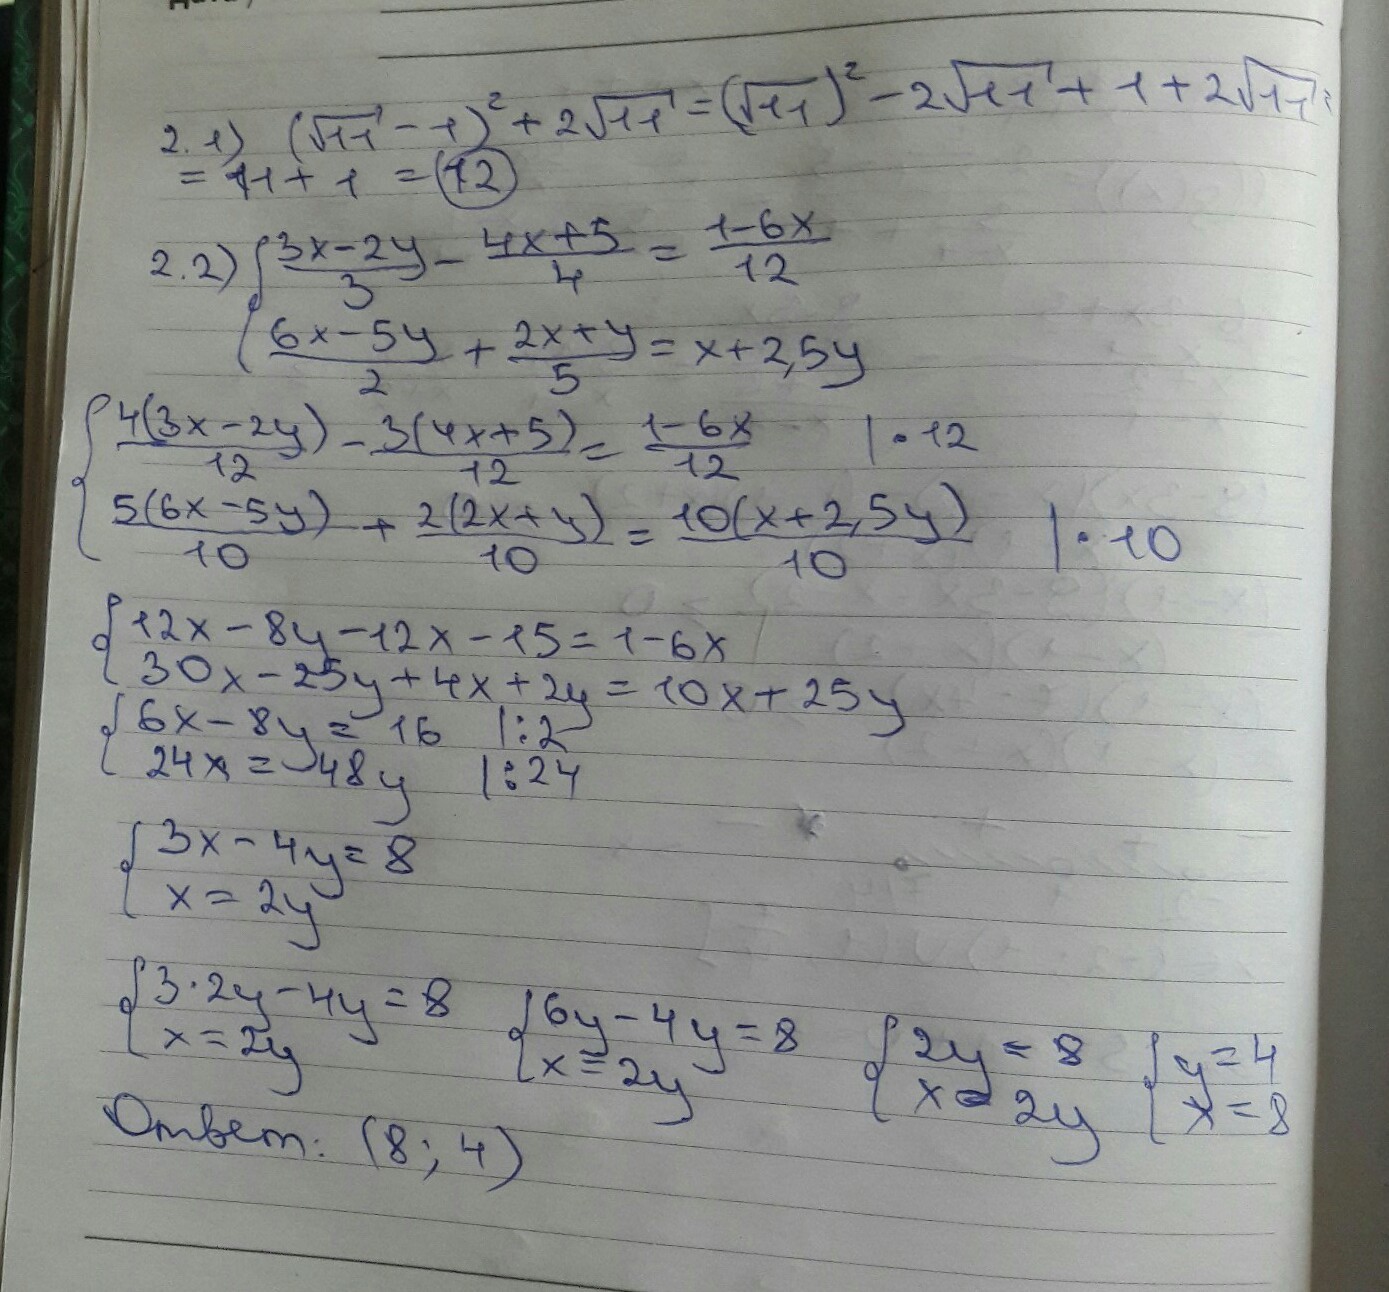 2.1) (√11 - 1)² + 2√11 = (√11)² - 2√11 + 1 + 2√11 =
= 11 + 1 = 12
2.2) { (3x-2y)/3 - (4x+5)/4 = (1-6x)/12
(6x-5y)/2 + (2x+y)/5 = x+2,5y
{ 4(3x-2y)/12 - 3(4x+5)/12 = (1-6x)/12 | · 12
5(6x-5y)/10 + 2(2x+y)/10 = 10(x+2,5y)/10 | · 10
{ 12x-8y-12x-15=1-6x
30x-25y+4x+2y=10x+25y
{ 6x-8y=16 |:2
24x=48y |:24
{ 3x-4y=8
x=2y
{ 3·2y-4y=8 { 6y-4y=8 { 2y=8 { y=4
x=2y x=2y x=2y x=8
Ответ: (8; 4)